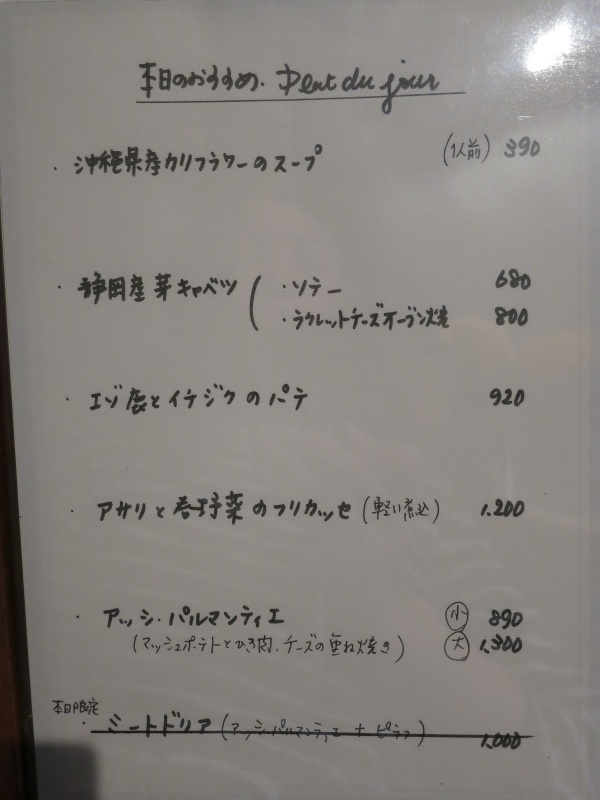 本日のおすすめ. Plat du jour
・沖縄県産カリフラワーのスープ (1人前) 390
・静岡産芽キャベツ ・ソテー 680
・ラクレットチーズオーブン焼 800
・エゾ鹿とイチジクのパテ 920
・アサリと春野菜のフリカッセ(軽い煮込) 1,200
・アッシ・パルマンティエ 小 890
(マッシュポテトとひき肉、チーズの重ね焼き) 大 1,300
本日限定
・ミートドリア(アッシパルマンティエ+ピラフ) 1,000